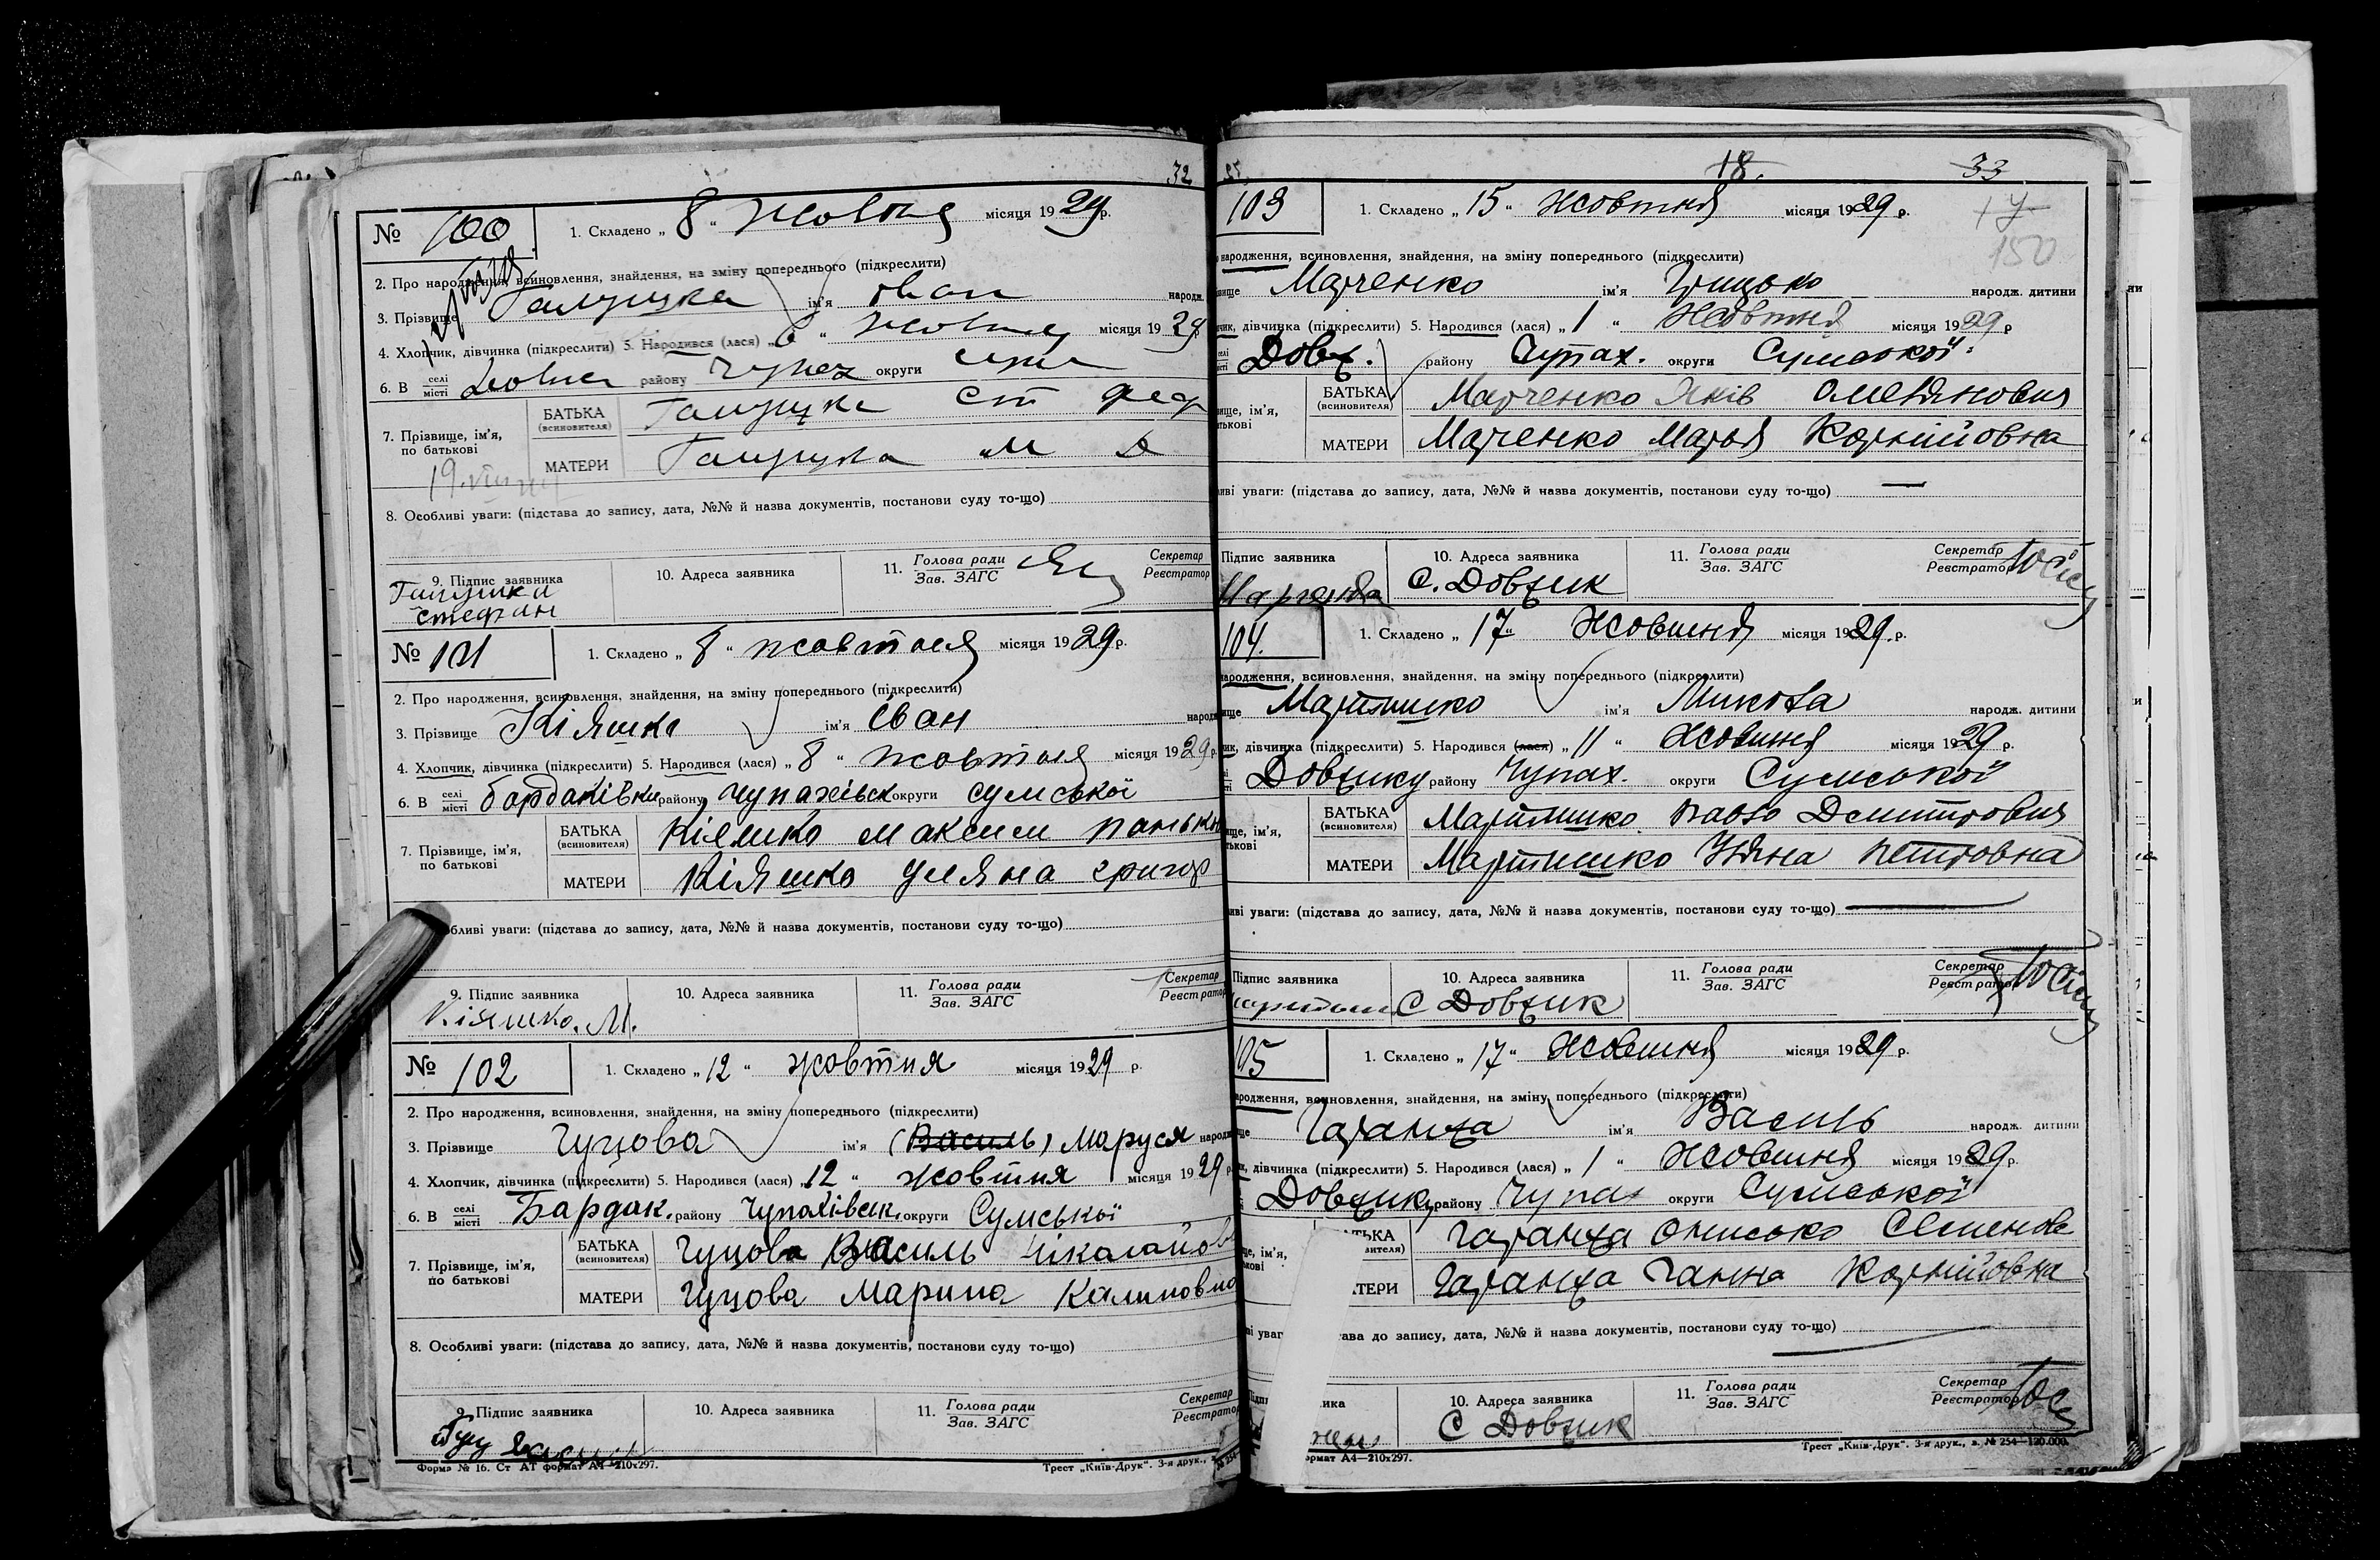 32
№ 100
1. Складено „ 8 “ Жовтня місяця 19 29 р.
2. Про народження, всиновлення, знайдення, на зміну попереднього (підкреслити)
3. Прізвище Галушка ім'я Іван народж.
4. Хлопчик, дівчинка (підкреслити) 5. Народився (лася) „ 6 “ Жовтня місяця 19 29
6. В селі місті району Чупах округи
7. Прізвище, ім'я, по батькові
БАТЬКА (всиновителя) Галушка Ст
МАТЕРИ Галушка М
8. Особливі уваги: (підстава до запису, дата, №№ й назва документів, постанови суду то-що)
9. Підпис заявника 10. Адреса заявника 11. Голова ради Зав. ЗАГС Секретар Реєстратор
Галушка
Стефан
№ 101
1. Складено „ 8 “ жовтня місяця 19 29 р.
2. Про народження, всиновлення, знайдення, на зміну попереднього (підкреслити)
3. Прізвище Кіяшко ім'я Іван народж
4. Хлопчик, дівчинка (підкреслити) 5. Народився (лася) „ 8 “ жовтня місяця 19 29 р.
6. В селі місті бардаківка району чупахівськ округи сумської
7. Прізвище, ім'я, по батькові
БАТЬКА (всиновителя) Кіяшко максим панько
МАТЕРИ Кіяшко уляна григор
бливі уваги: (підстава до запису, дата, №№ й назва документів, постанови суду то-що)
9. Підпис заявника 10. Адреса заявника 11. Голова ради Зав. ЗАГС Секретар Реєстратор
Кіяшко. М.
№ 102
1. Складено „ 12 “ жовтня місяця 19 29 р.
2. Про народження, всиновлення, знайдення, на зміну попереднього (підкреслити)
3. Прізвище Гуцова ім'я (Василь) Маруся народж
4. Хлопчик, дівчинка (підкреслити) 5. Народився (лася) „ 12 “ жовтня місяця 19 29 р.
6. В селі місті Бардак. району Чупахівськ. округи Сумської
7. Прізвище, ім'я, по батькові
БАТЬКА (всиновителя) Гуцова Василь Нікалайов
МАТЕРИ Гуцова Марина Калиновна
8. Особливі уваги: (підстава до запису, дата, №№ й назва документів, постанови суду то-що)
9. Підпис заявника 10. Адреса заявника 11. Голова ради Зав. ЗАГС Секретар Реєстратор
Форма № 16. Ст АТ формат А4—210х297. Трест „Київ-Друк“. 3-я друк.,
18. 33
103
1. Складено „ 15 “ Жовтня місяця 19 29 р.
150
народження, всиновлення, знайдення, на зміну попереднього (підкреслити)
вище Марченко ім'я Грицько народж. дитини
чик, дівчинка (підкреслити) 5. Народився (лася) „ 1 “ Жовтня місяця 19 29 р
селі місті Довж. району Чупах. округи Сумської
вище, ім'я, тькові
БАТЬКА (всиновителя) Марченко Яків Омелянович
МАТЕРИ Марченко Марья Корнійовна
иві уваги: (підстава до запису, дата, №№ й назва документів, постанови суду то-що) —
Підпис заявника 10. Адреса заявника 11. Голова ради Зав. ЗАГС Секретар Реєстратор
С. Довжик
104.
1. Складено „ 17 “ Жовтня місяця 19 29 р.
народження, всиновлення, знайдення, на зміну попереднього (підкреслити)
ище Мартишко ім'я Микола народж. дитини
ик, дівчинка (підкреслити) 5. Народився (лася) „ 11 “ Жовтня місяця 19 29 р.
Довжику району Чупах. округи Сумської
ще, ім'я, тькові
БАТЬКА (всиновителя) Мартишко Павло Дмитрович
МАТЕРИ Мартишко Уляна Петровна
иві уваги: (підстава до запису, дата, №№ й назва документів, постанови суду то-що)
Підпис заявника 10. Адреса заявника 11. Голова ради Зав. ЗАГС Секретар Реєстратор
С Довжик
105
1. Складено „ 17 “ Жовтня місяця 19 29 р.
ародження, всиновлення, знайдення, на зміну попереднього (підкреслити)
ще Гаранжа ім'я Василь народж. дитини
к, дівчинка (підкреслити) 5. Народився (лася) „ 1 “ Жовтня місяця 19 29 р.
Довжик, району Чупах округи Сумської
ще, ім'я, кові
АТЬКА вителя) Гаранжа Онисько Семенов
ТЕРИ Гаранжа Ганна Корнійовна
ві уваг ава до запису, дата, №№ й назва документів, постанови суду то-що)
ика 10. Адреса заявника 11. Голова ради Зав. ЗАГС Секретар Реєстратор
С Довжик
ормат А4—210х297. Трест „Київ-Друк“. 3-я друк., з. № 254—120.000.